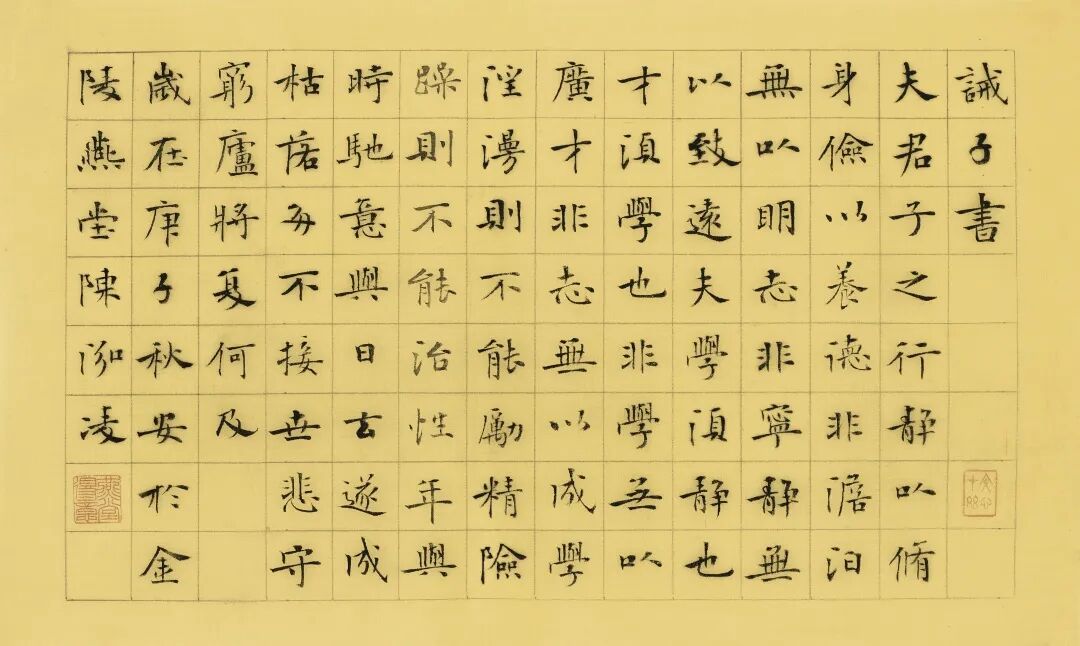 誡子書
夫君子之行静以脩
身儉以養德非澹泊
無以明志非寧静無
以致遠夫學須静也
才須學也非學無以
廣才非志無以成學
淫漫則不能勵精險
躁則不能治性年與
時馳意與日去遂成
枯落多不接世悲守
窮廬將复何及
歲在庚子秋安於金
陵燕堂陳凌